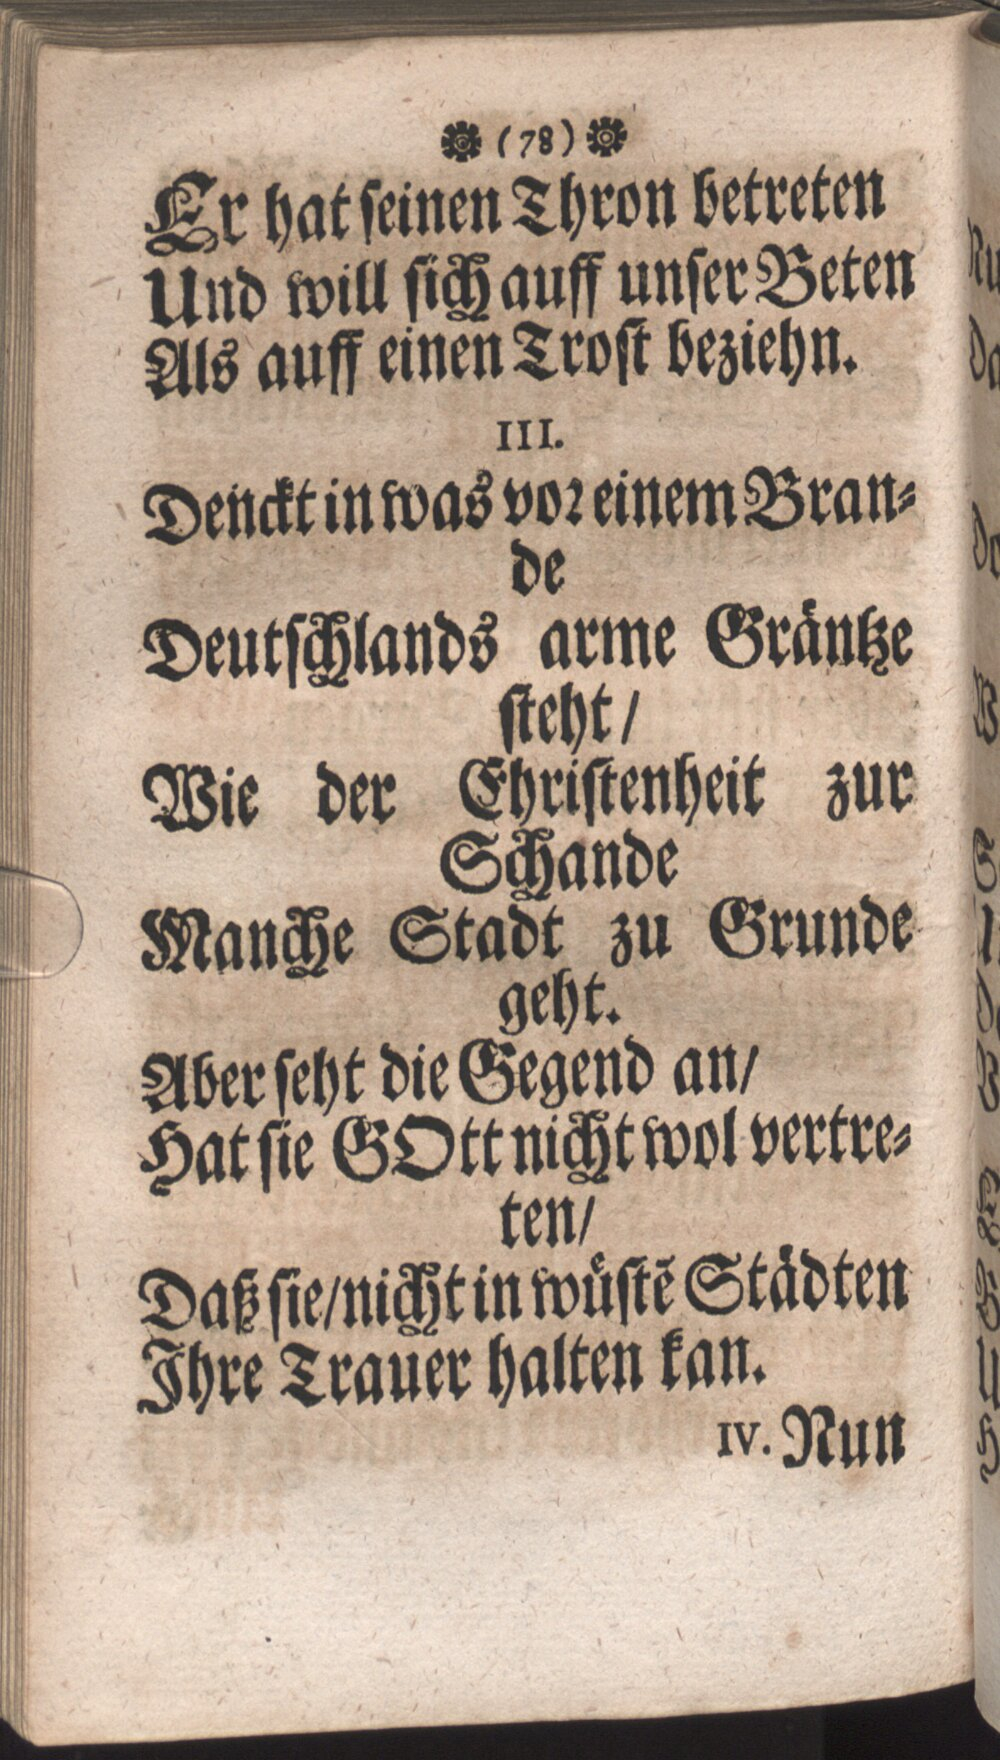 (78)
Er hat seinen Thron betreten
Und will sich auff unser Beten
Als auff einen Trost beziehn.
III.
Denckt in was vor einem Bran-
de
Deutschlands arme Gräntze
steht/
Wie der Christenheit zur
Schande
Manche Stadt zu Grunde
geht.
Aber seht die Gegend an/
Hat sie GOtt nicht wol vertre-
ten/
Daß sie/nicht in wüstẽ Städten
Ihre Trauer halten kan.
IV. Nun